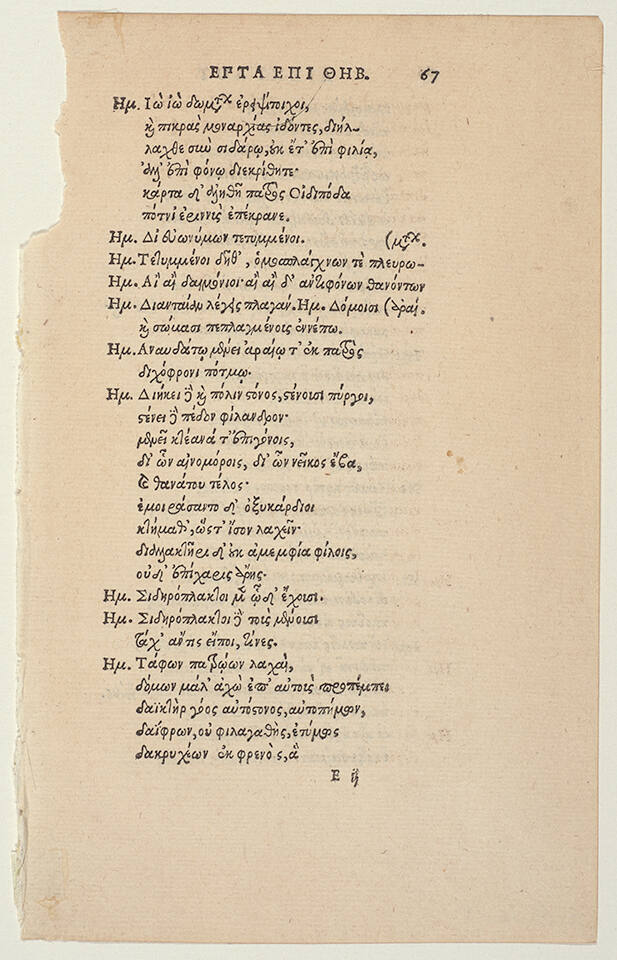 ΕΓΤΑ ΕΠΙ ΘΗΒ. 67
Ημ. Ιὼ ἰὼ δωμάτων ἐρεψίτοιχοι,
καὶ πικρὰς μοναρχίας ἰδόντες, διήλ-
λαχθε σὺν σιδάρῳ, οὐκ ἔτ' ἐπὶ φιλίᾳ,
ἀλλ' ἐπὶ φόνῳ διεκρίθητε·
κάρτα δ' ἀληθῆ πατρὸς Οἰδιπόδα
πότνι' ἐριννὺς ἐπέκρανε.
Ημ. Δι' εὐωνύμων τετυμμένοι. (μάτων.
Ημ. Τετυμμένοι δῆθ', ὁμοσπλάγχνων τὲ πλευρω-
Ημ. Αἲ αἲ δαιμόνιοι· αἲ αἲ δ' ἀντιφόνων θανόντων
Ημ. Διανταίαν λέγεις πλαγάν. Ημ. Δόμοισι (ἀραί.
καὶ σώμασι πεπλαγμένοις ἐννέπω.
Ημ. Αναυδάτῳ μένει ἀραίῳ τ' ἐκ πατρὸς
διχόφρονι πότμῳ.
Ημ. Διήκει δὲ καὶ πόλιν στόνος, στένουσι πύργοι,
στένει δὲ πέδον φίλανδρον·
μενεῖ κτέανά τ' ἐπιγόνοις,
δι' ὧν αἰνομόροις, δι' ὧν νεῖκος ἔβα,
καὶ θανάτου τέλος·
ἐμοιράσαντο δ' ὀξυκάρδιοι
κτήμαθ', ὥστ' ἴσον λαχεῖν·
διαλλακτῆρι δ' οὐκ ἀμεμφία φίλοις,
οὐδ' ἐπίχαρις ἄρης·
Ημ. Σιδηρόπλακτοι μὲν ὧδ' ἔχουσι.
Ημ. Σιδηρόπλακτοι δὲ τοὺς μένουσι
τάχ' ἄν τις εἴποι, τίνες.
Ημ. Τάφων πατρῴων λαχαί,
δόμων μάλ' ἀχὼ ἐπ' αὐτοὺς προπέμπει
δαϊκτὴρ γόος αὐτόστονος, αὐτοπήμων,
δαΐφρων, οὐ φιλαγαθὴς, ἐτύμως
δακρυχέων ἐκ φρενὸς, ἃ
E ij